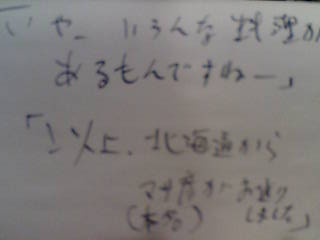 「いや、いろんな料理が
あるもんですねー」
「以上、北海道から
マチ子がお送り
(本名) しました」